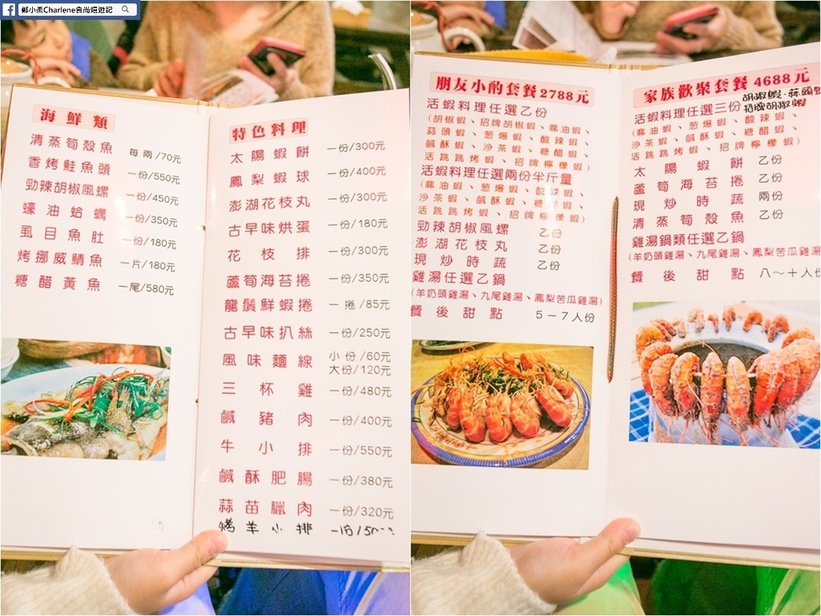 鄭小柔Charlene食尚嬉遊記
海鮮類
清蒸筍殼魚 每兩/70元
香烤鮭魚頭 一份/550元
勁辣胡椒風螺 一份/450元
蠔油蛤蠣 一份/350元
虱目魚肚 一份/180元
烤挪威鯖魚 一片/180元
糖醋黃魚 一尾/580元
特色料理
太陽蝦餅 一份/300元
鳳梨蝦球 一份/400元
澎湖花枝丸 一份/300元
古早味烘蛋 一份/180元
花枝排 一份/300元
蘆筍海苔捲 一份/350元
龍鬚鮮蝦捲 一捲/85元
古早味扒絲 一份/250元
風味麵線 小份/60元
大份/120元
三杯雞 一份/480元
鹹豬肉 一份/400元
牛小排 一份/550元
鹹酥肥腸 一份/380元
蒜苗臘肉 一份/320元
烤羊小排 一份/50
朋友小酌套餐2788元
活蝦料理任選乙份
(胡椒蝦、招牌胡椒蝦、麻油蝦、
蒜頭蝦、蔥爆蝦、酸辣蝦、
鹹酥蝦、沙茶蝦、糖醋蝦、
活跳跳烤蝦、招牌檸檬蝦)
活蝦料理任選兩份半斤量
(麻油蝦、蔥爆蝦、酸辣蝦、
沙茶蝦、鹹酥蝦、糖醋蝦、
活跳跳烤蝦、招牌檸檬蝦)
勁辣胡椒風螺 乙份
澎湖花枝丸 乙份
現炒時蔬 乙份
雞湯任選乙鍋
(羊奶頭雞湯、九尾雞湯、鳳梨苦瓜雞湯)
餐後甜點 5－7人份
家族歡聚套餐 4688元
胡椒蝦、蒜頭蝦
活蝦料理任選三份 招牌胡椒蝦
(麻油蝦、蔥爆蝦、酸辣蝦、
沙茶蝦、鹹酥蝦、糖醋蝦、
活跳跳烤蝦、招牌檸檬蝦)
太陽蝦餅 乙份
蘆筍海苔捲 乙份
現炒時蔬 兩份
清蒸筍殼魚 乙份
雞湯鍋類任選乙鍋
(羊奶頭雞湯、九尾雞湯、鳳梨苦瓜雞湯)
餐後甜點 八～十人份